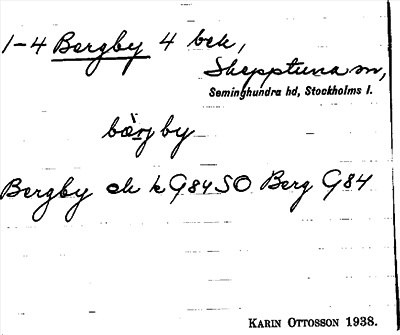 1-4 Bergby 4 bek,
Skepptuna sn,
Seminghundra hd, Stockholms l.
bærjby
Bergby ek k G84 SO Berg G84
KARIN OTTOSSON 1938.